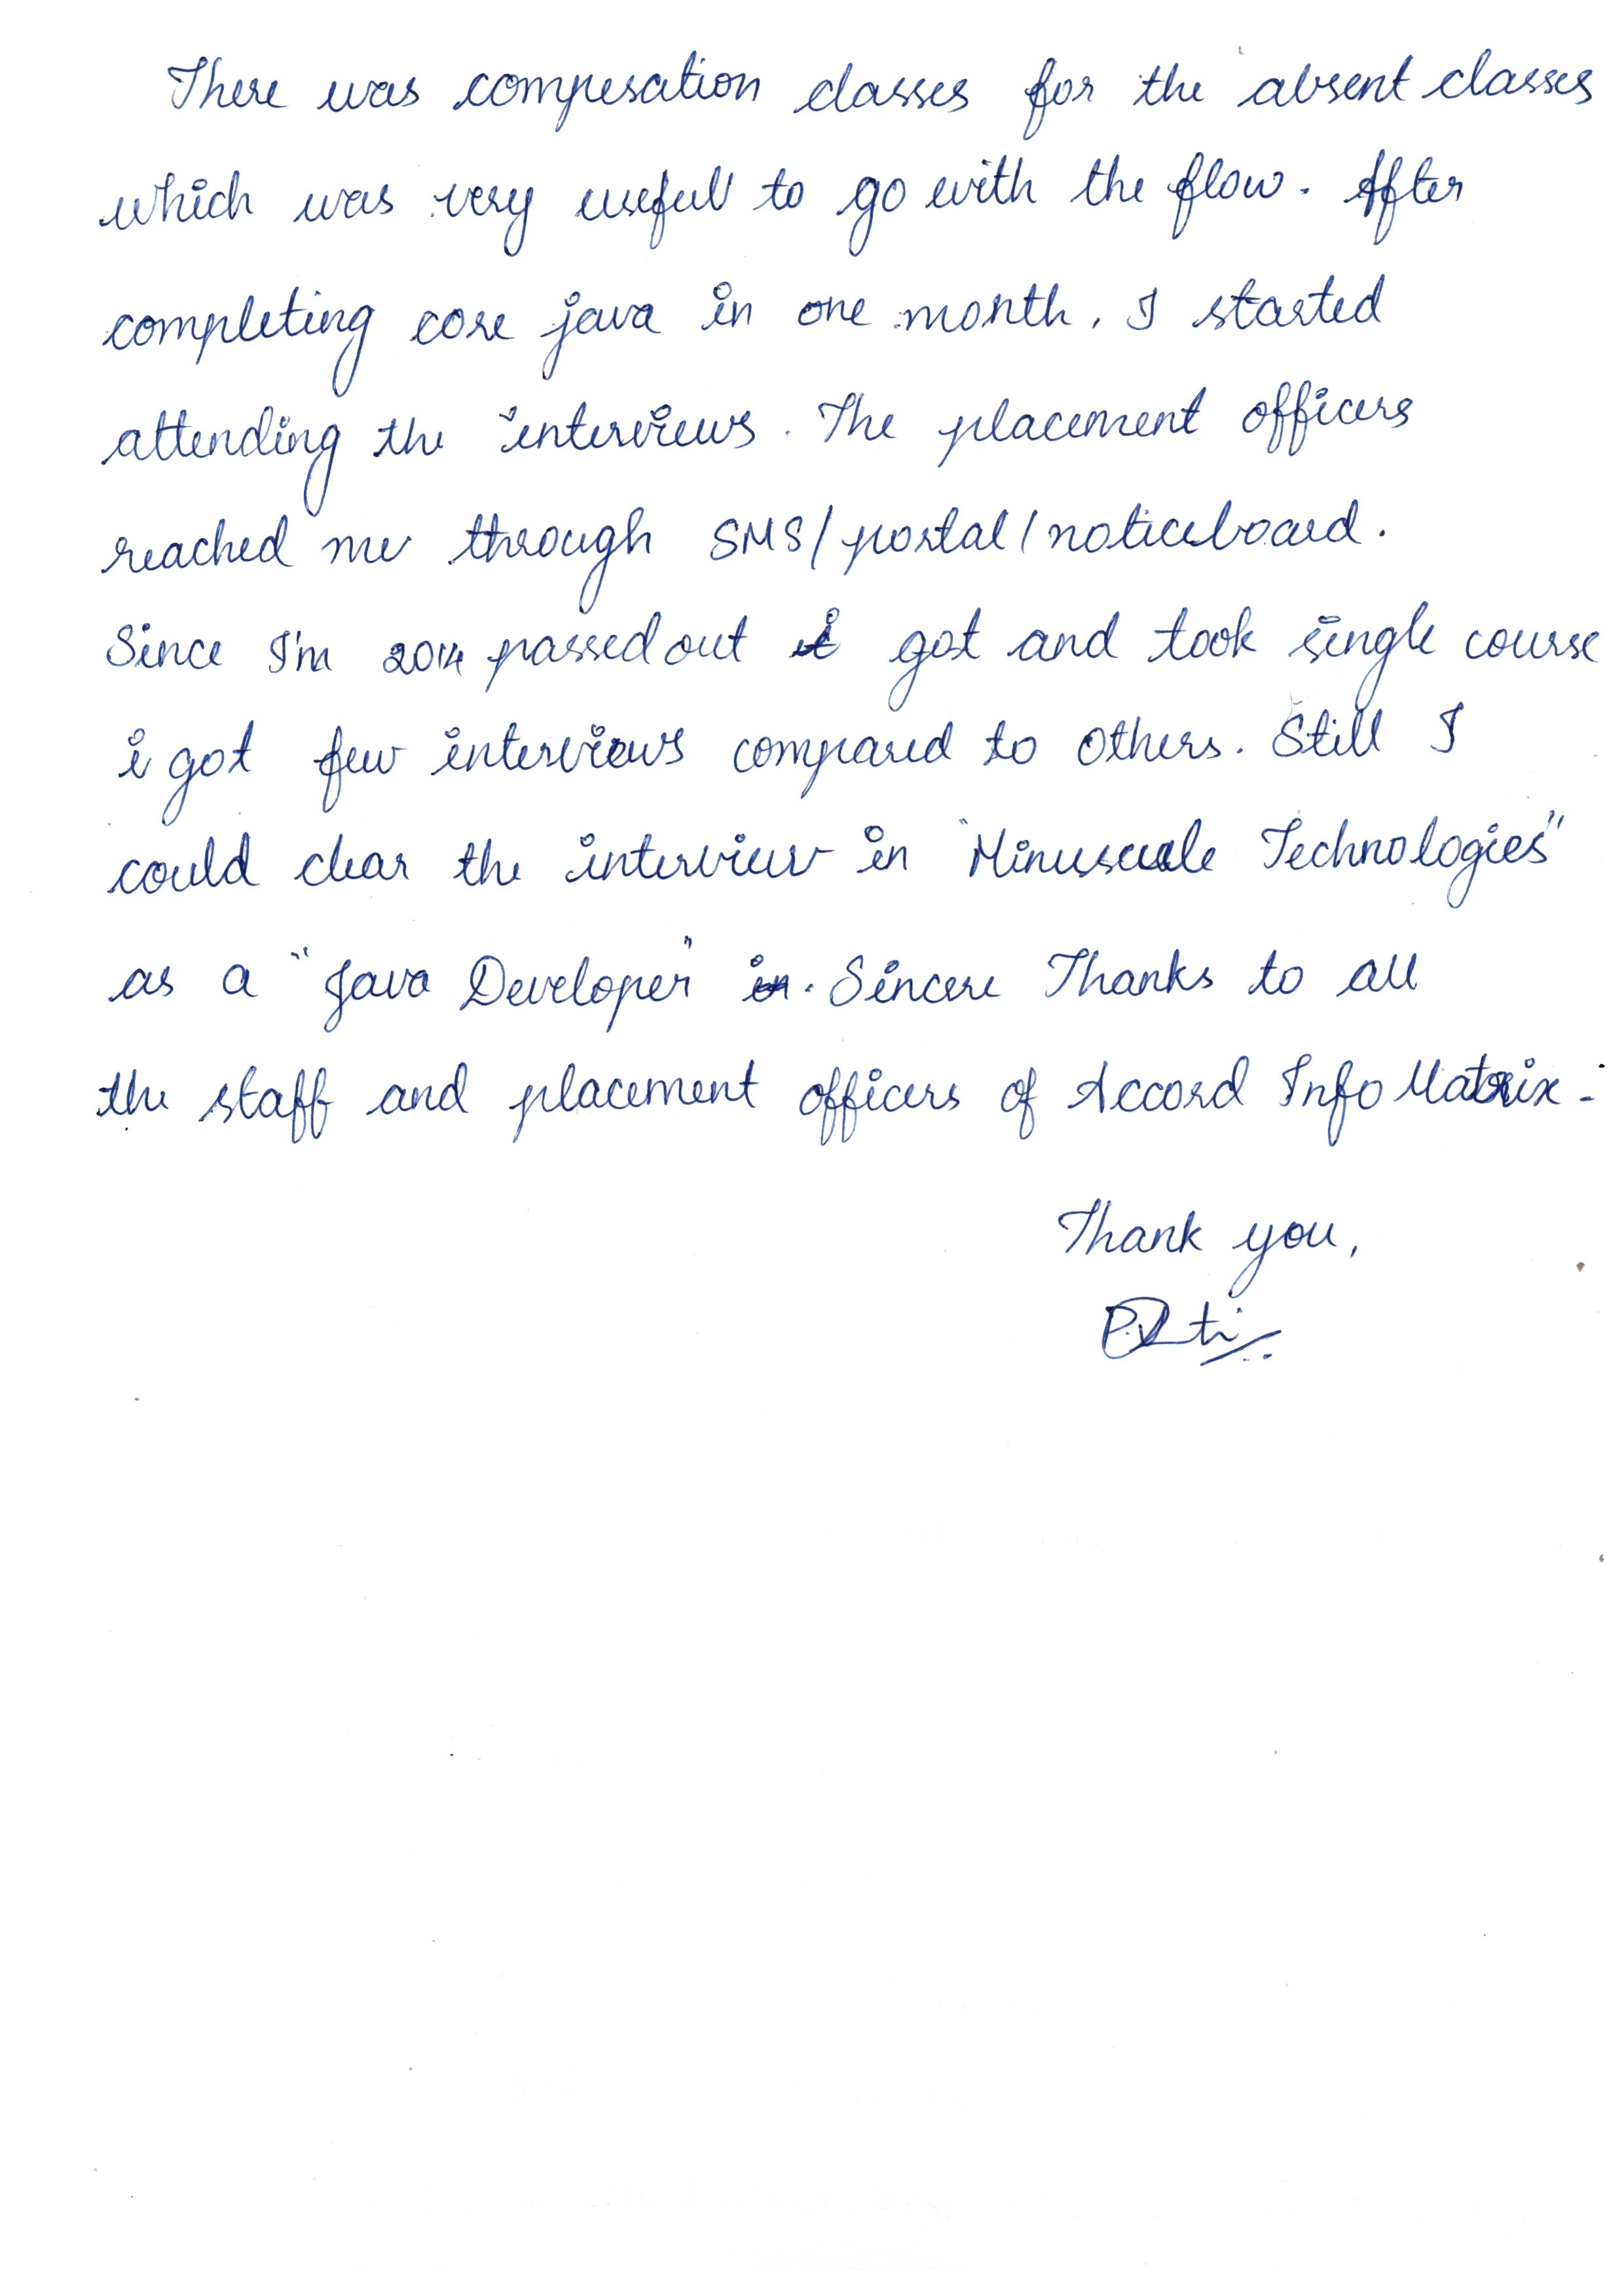 There was compesation classes for the absent classes
which was very usefull to go with the flow. After
completing core java in one month, I started
attending the interviews. The placement officers
reached me through SMS/portal/noticeboard.
Since I'm 2014 passed out got and took single course
i got few interviews compared to others. Still I
could clear the interview in "Minuscule Technologies"
as a "Java Developer" in. Sincere Thanks to all
the staff and placement officers of Accord Info Matrix.
Thank you,